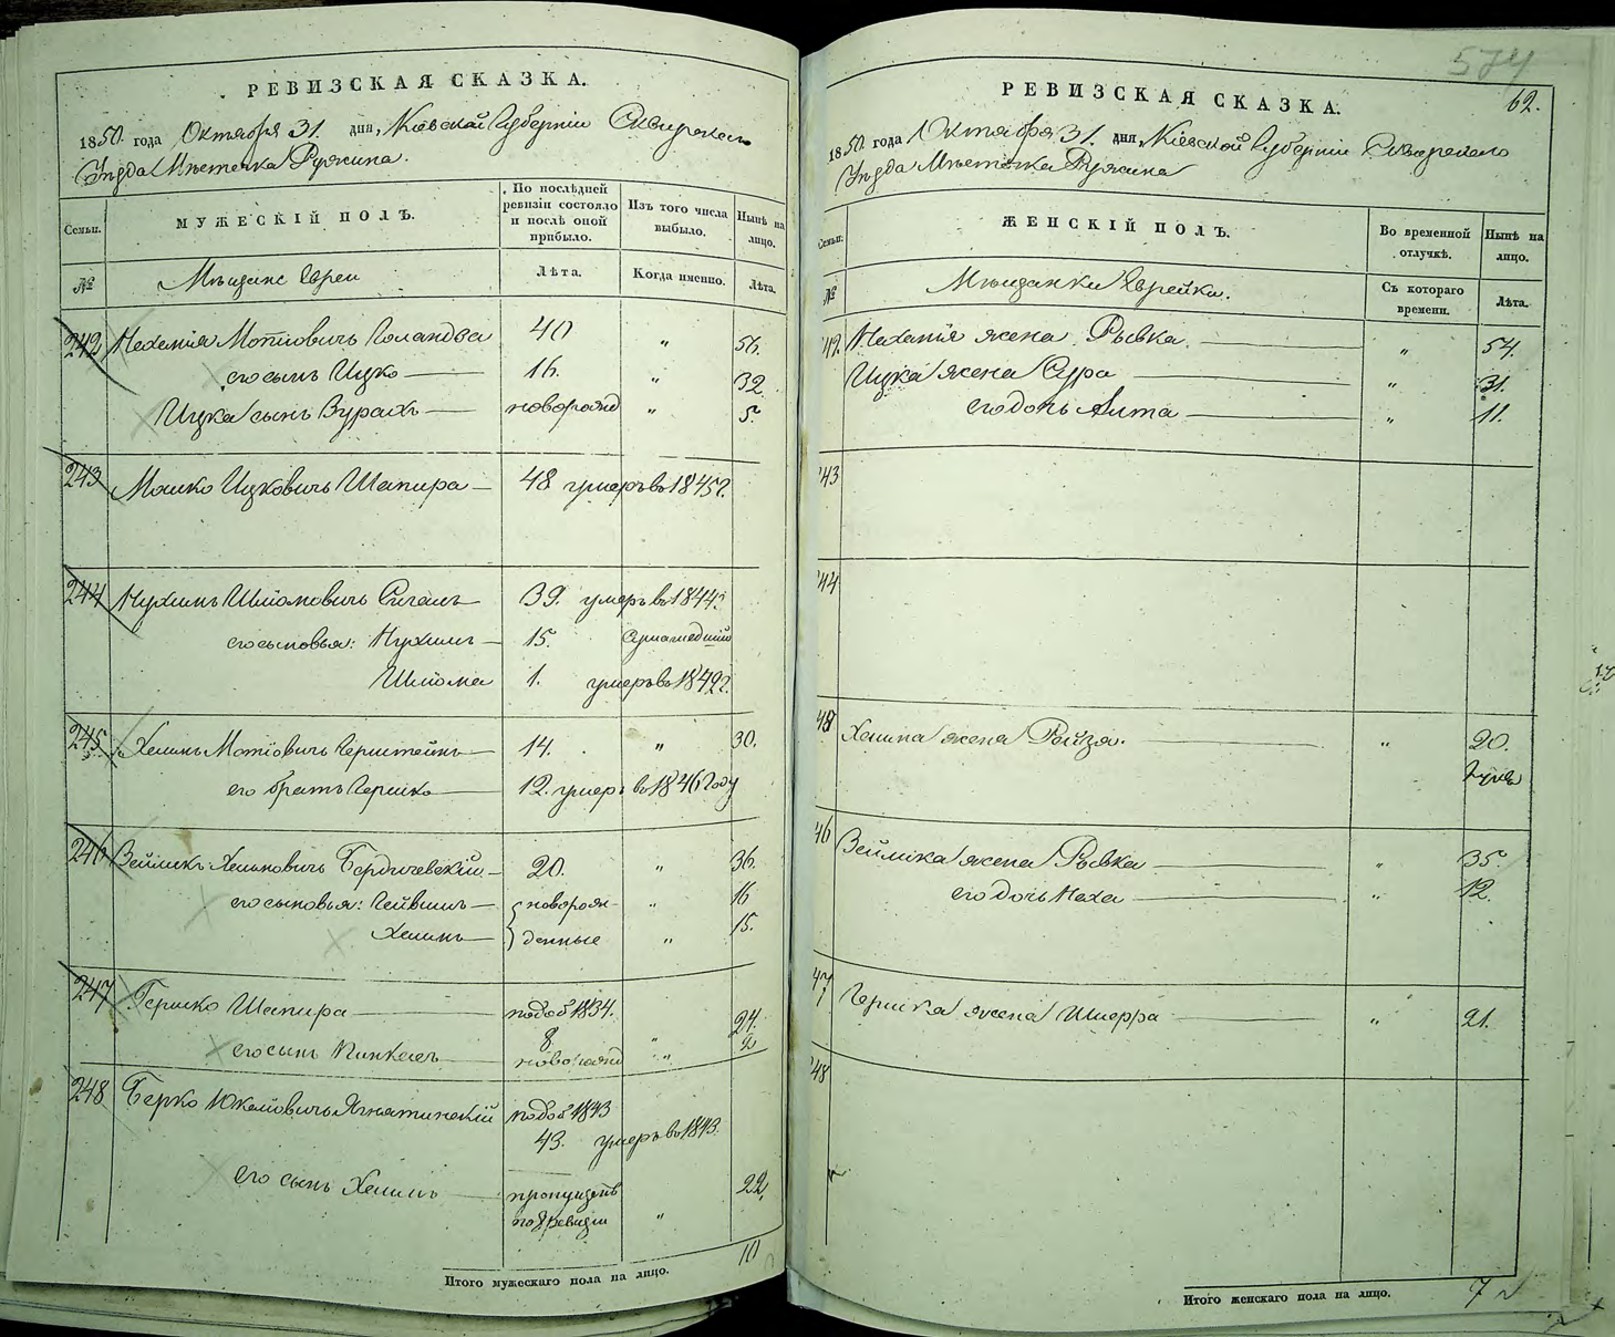 РЕВИЗСКАЯ СКАЗКА.
1850. года Октября 31. дня, Кіевской Губерніи Сквирскаго
Уѣзда Мѣстечка Ружина.
Семьи.
МУЖЕСКІЙ ПОЛЪ.
По послѣдней ревизіи состояло и послѣ оной прибыло.
Изъ того числа выбыло.
Нынѣ на лицо.
№
Мѣщане Евреи
Лѣта.
Когда именно.
Лѣта.
242 Нехемія Мотіовичь Голандва 40 " 56.
его сынъ Ицко 16. " 32
Ицка сынъ Бурахъ новорожд " 5.
243 Мошко Ицковичь Шапира 48 умеръ въ 1845г.
244 Нухимъ Шліомовичь Сигалъ 39. умеръ въ 1844г
его сыновья: Нухимъ 15. сумашедшій
Шліома 1. умеръ въ 1849г.
245 Хаимъ Мотіовичь Герштейнъ 14. " 30.
его братъ Гершко 12. умеръ въ 1846 году
246 Зейликъ Хаимовичь Бердичевскій 20. " 36.
его сыновья: Лейвишъ новорож- " 16
Хаимъ денные " 15.
247 Гершко Шапира под об 1834.
8 " 24.
его сынъ Пинкасъ новорожд " 2
248 Берко Юкеловичь Ягнатинскій под об 1843
43. умеръ въ 1843.
его сынъ Хаимъ пропущенъ 22.
по 8 ревизіи "
10
Итого мужескаго пола на лицо.
574
62.
РЕВИЗСКАЯ СКАЗКА.
1850 года Октября 31. дня, Кіевской Губерніи Сквирскаго
Уѣзда Мѣстечка Ружина
Семьи.
ЖЕНСКІЙ ПОЛЪ.
Во временной отлучкѣ.
Нынѣ на лицо.
№
Мѣщанки Еврейки.
Съ котораго времени.
Лѣта.
42. Нехемія жена Рывка. " 54.
Ицка жена Сура " 31.
его дочь Алта " 11.
43
44
45 Хаима жена Рейзя. " 20.
46 Зейлика жена Рывка " 35.
его дочь Неха " 12.
47 Гершка жена Шперра " 21.
48
7
Итого женскаго пола на лицо.